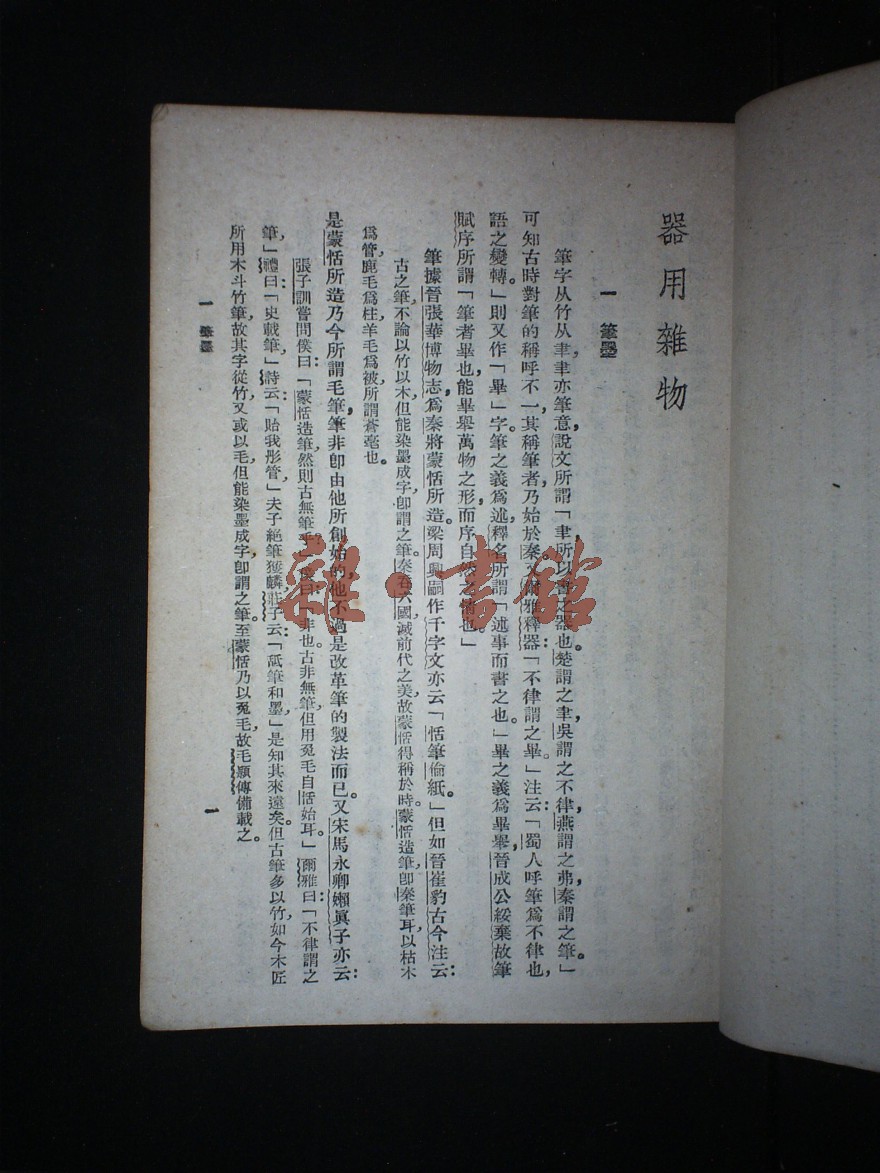 器用雜物
一 筆墨
筆字从竹从聿，聿亦筆意，說文所謂「聿，所以書之器也。楚謂之聿，吳謂之不律，燕謂之弗，秦謂之筆。」
可知古時對筆的稱呼不一，其稱筆者，乃始於秦。又爾雅釋器：「不律謂之畢。」注云：「蜀人呼筆爲不律也，
語之變轉。」則又作「畢」字。筆之義爲述，釋名所謂「述事而書之也。」畢之義爲畢舉，晉成公綏棄故筆
賦序所謂「筆者畢也，能畢舉萬物之形，而序自然之情也。」
筆據晉張華博物志，爲秦將蒙恬所造。梁周興嗣作千字文亦云「恬筆倫紙。」但如晉崔豹古今注云：
古之筆不論以竹以木，但能染墨成字，卽謂之筆。秦吞六國，滅前代之美，故蒙恬得稱於時。蒙恬造筆，卽秦筆耳。以枯木
爲管，鹿毛爲柱，羊毛爲被，所謂蒼毫也。
是蒙恬所造，乃今所謂毛筆，筆非卽由他所創始的，他不過是改革筆的製法而已。又宋馬永卿嬾眞子亦云：
張子訓嘗問僕曰：「蒙恬造筆，然則古無筆乎？」僕曰：「非也。古非無筆，但用兔毛自恬始耳。」爾雅曰：「不律謂之
筆，」禮曰：「史載筆，」詩云：「貽我彤管，」夫子絕筆獲麟，莊子云：「舐筆和墨，」是知其來遠矣。但古筆多以竹，如今木匠
所用木斗竹筆，故其字從竹。又或以毛，但能染墨成字，卽謂之筆。至蒙恬乃以兔毛，故毛穎傳備載之。
一 筆墨
一
雜·書館